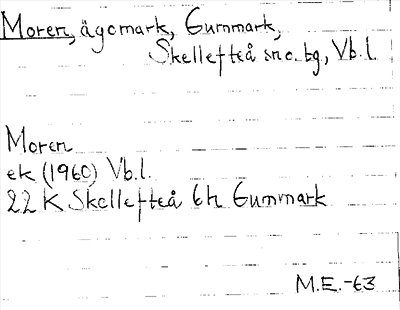 Moren, ägomark, Gummark,
Skellefteå sn o. bg, Vb. l.
Moren
ek (1960) Vb. l.
22 K Skellefteå 6h Gummark
M.E. -63